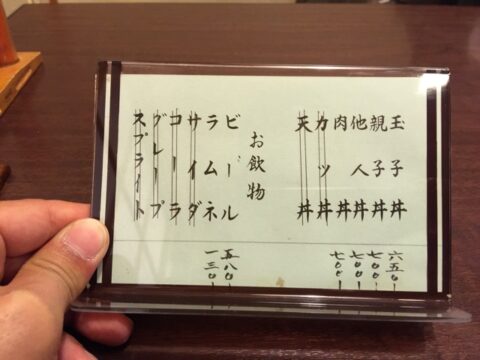 玉子丼 六五〇ー
親子丼 七〇〇ー
他人丼 七〇〇ー
肉丼 七〇〇ー
カツ丼
天丼
お飲物
ビール 五八〇ー
ラムネ 一三〇ー
サイダー
コーラ
グレープ
スプライト